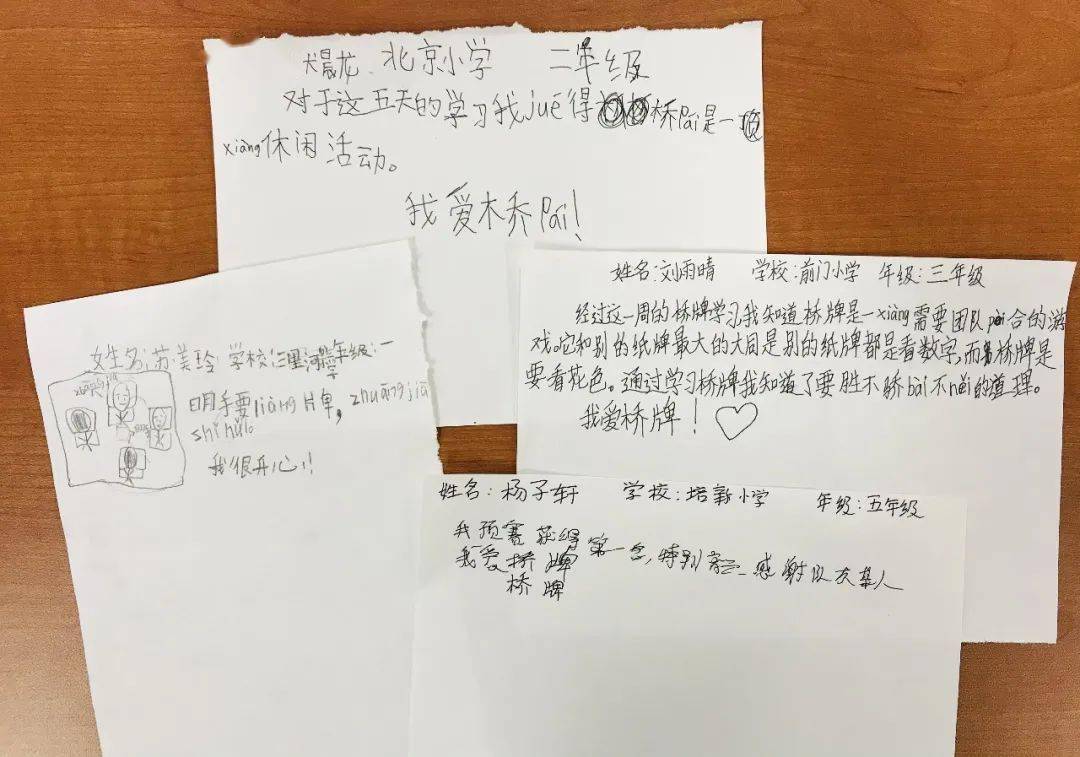 晨龙 北京小学 二年级
对于这五天的学习我jué得桥Pái是一项
xiàng休闲活动。
我爱木乔Pái!
姓名:苏美玲 学校:三里河小学 年级:一
明手要liàng片卑,zhuāng jiā
shǐ hu。
我很开心!!
姓名:刘雨晴 学校:前门小学 年级:三年级
经过这一周的桥牌学习,我知道桥牌是一xiàng需要团队pèi合的游
戏。它和别的纸牌最大的大同是别的纸牌都是看数字,而桥牌是
要看花色。通过学习桥牌我知道了要胜不骄bài不něi的道理。
我爱桥牌!
姓名:杨子轩 学校:培新小学 年级:五年级
我预赛获得第一名,特别 感谢队友某人
我爱桥牌
桥牌